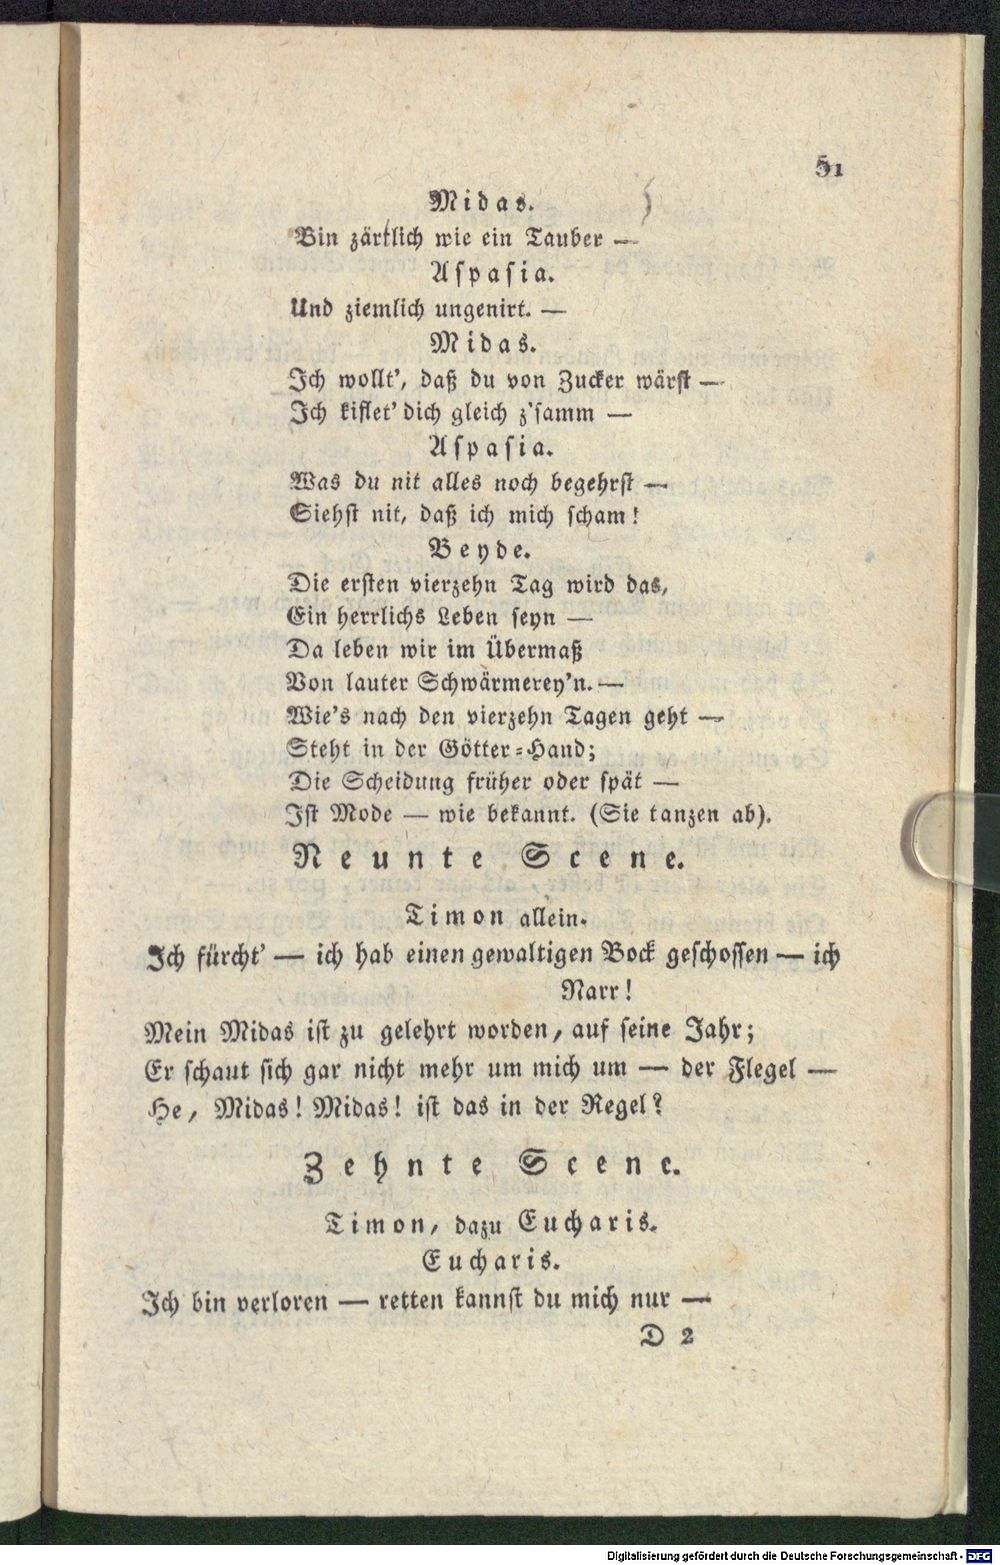 51
Midas.
Bin zärtlich wie ein Tauber —
Aspasia.
Und ziemlich ungenirt. —
Midas.
Ich wollt', daß du von Zucker wärst —
Ich kiflet' dich gleich z'samm —
Aspasia.
Was du nit alles noch begehrst —
Siehst nit, daß ich mich scham!
Beyde.
Die ersten vierzehn Tag wird das,
Ein herrlichs Leben seyn —
Da leben wir im Übermaß
Von lauter Schwärmerey'n. —
Wie's nach den vierzehn Tagen geht —
Steht in der Götter-Hand;
Die Scheidung früher oder spät —
Ist Mode — wie bekannt. (Sie tanzen ab).
Neunte Scene.
Timon allein.
Ich fürcht' — ich hab einen gewaltigen Bock geschossen — ich
Narr!
Mein Midas ist zu gelehrt worden, auf seine Jahr;
Er schaut sich gar nicht mehr um mich um — der Flegel —
He, Midas! Midas! ist das in der Regel?
Zehnte Scene.
Timon, dazu Eucharis.
Eucharis.
Ich bin verloren — retten kannst du mich nur —
D 2
Digitalisierung gefördert durch die Deutsche Forschungsgemeinschaft - DFG